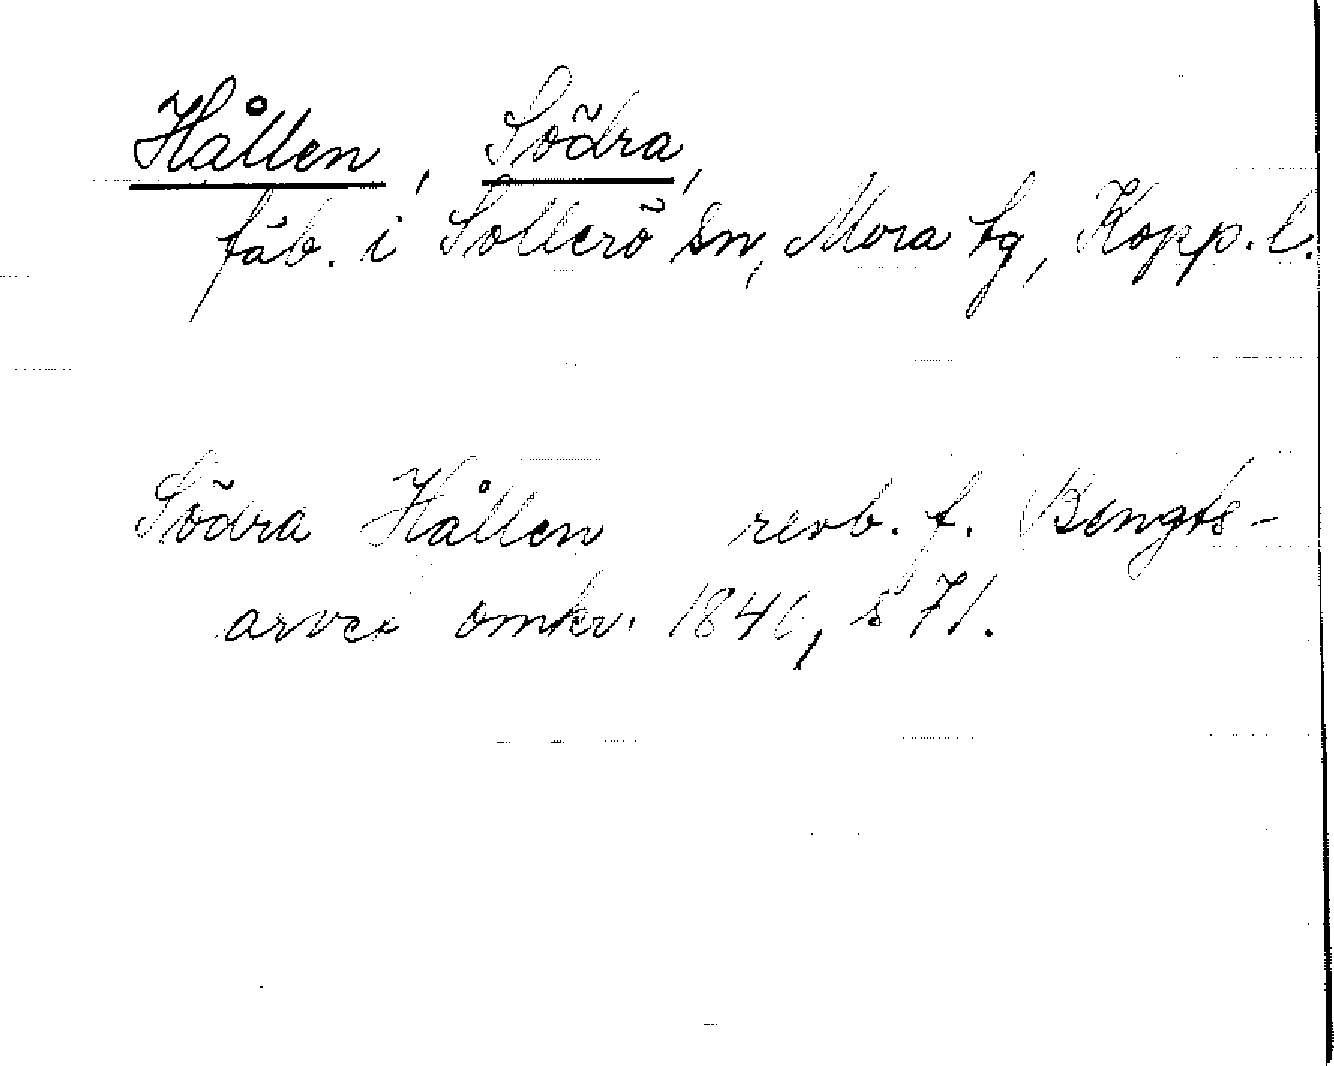 Hållen, Södra,
fäb. i Sollerö sn, Mora tg, Kopp. l.
Södra Hållen revb. f. Bengts-
arvet omkr. 1840, s 71.